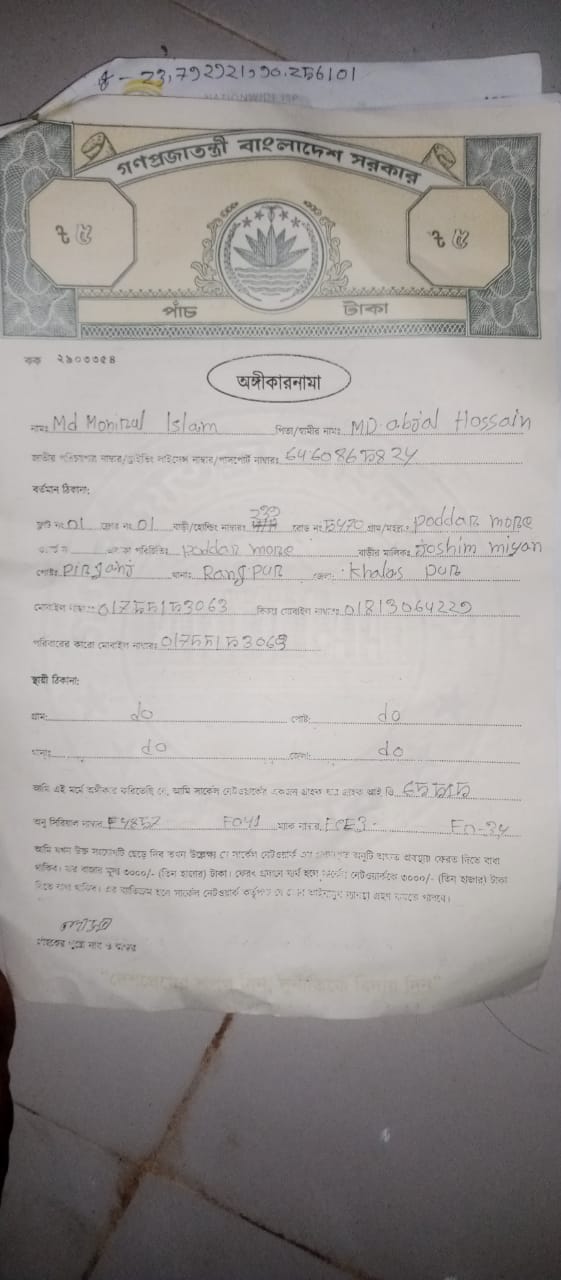 8 - 23,792921,90.256101
NATIONWIDE ISP
গণপ্রজাতন্ত্রী বাংলাদেশ সরকার
ট ৫ ট ৫
পাঁচ টাকা
কক ২৯০৩৩৫৪
অঙ্গীকারনামা
নামঃ Md Monirul Islam পিতা/স্বামীর নামঃ MD. abjal Hossain
জাতীয় পরিচয়পত্র নাম্বার/ড্রাইভিং লাইসেন্স নাম্বার/পাসপোর্ট নাম্বারঃ 6460865824
বর্তমান ঠিকানা:
ফ্ল্যাট নং 01 ফ্লোর নং 01 বাড়ী/হোল্ডিং নাম্বারঃ রোড নং গ্রাম/মহল্লাঃ poddar more
পরিচিতিঃ poddar more বাড়ীর মালিকঃ Joshim miyan
পোষ্টঃ pirganj থানাঃ Rangpur জেলাঃ Khalas pur
মোবাইল নাম্বারঃ 01755153063 বিকল্প মোবাইল নাম্বারঃ 01813064229
পরিবারের কারো মোবাইল নাম্বারঃ 01755153063
স্থায়ী ঠিকানা:
গ্রামঃ do পোষ্ট: do
থানাঃ do জেলাঃ do
আমি এই মর্মে অঙ্গীকার করিতেছি যে, আমি সার্কেল নেটওয়ার্কের একজন গ্রাহক যার গ্রাহক আই ডি
অনু সিরিয়াল নাম্বার E4857 F041 ম্যাক নাম্বার
আমি যখন উক্ত সংযোগটি ছেড়ে দিব তখন উল্লেখ্য যে সার্কেল নেটওয়ার্ক এর অনুটি অক্ষত অবস্থায় ফেরত দিতে বাধ্য
থাকিব। যার বাজার মূল্য ৩০০০/- (তিন হাজার) টাকা। ফেরৎ প্রদানে ব্যর্থ হলে সার্কেল নেটওয়ার্ককে ৩০০০/- (তিন হাজার) টাকা
দিতে বাধ্য থাকিব। এর ব্যতিক্রম হলে সার্কেল নেটওয়ার্ক কর্তৃপক্ষ যে কোন আইনানুগ ব্যবস্থা গ্রহণ করতে পারবে।
গ্রাহকের পুরো নাম ও স্বাক্ষর